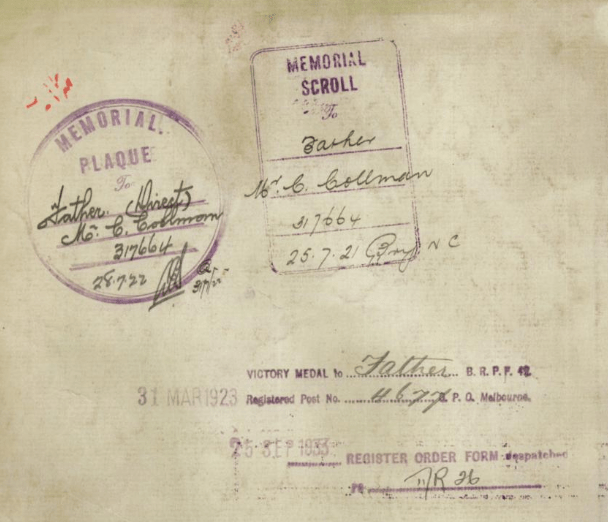 MEMORIAL
PLAQUE
To
Father. (Direct)
Mr. C. Collman
317664
28.7.22
MEMORIAL
SCROLL
To
Father
Mr. C. Collman
317664
25.7.21
VICTORY MEDAL to Father B. R. P. F. 42.
31 MAR 1923 Registered Post No. 4677 G. P. O. Melbourne.
25 SEP 1933
REGISTER ORDER FORM despatched